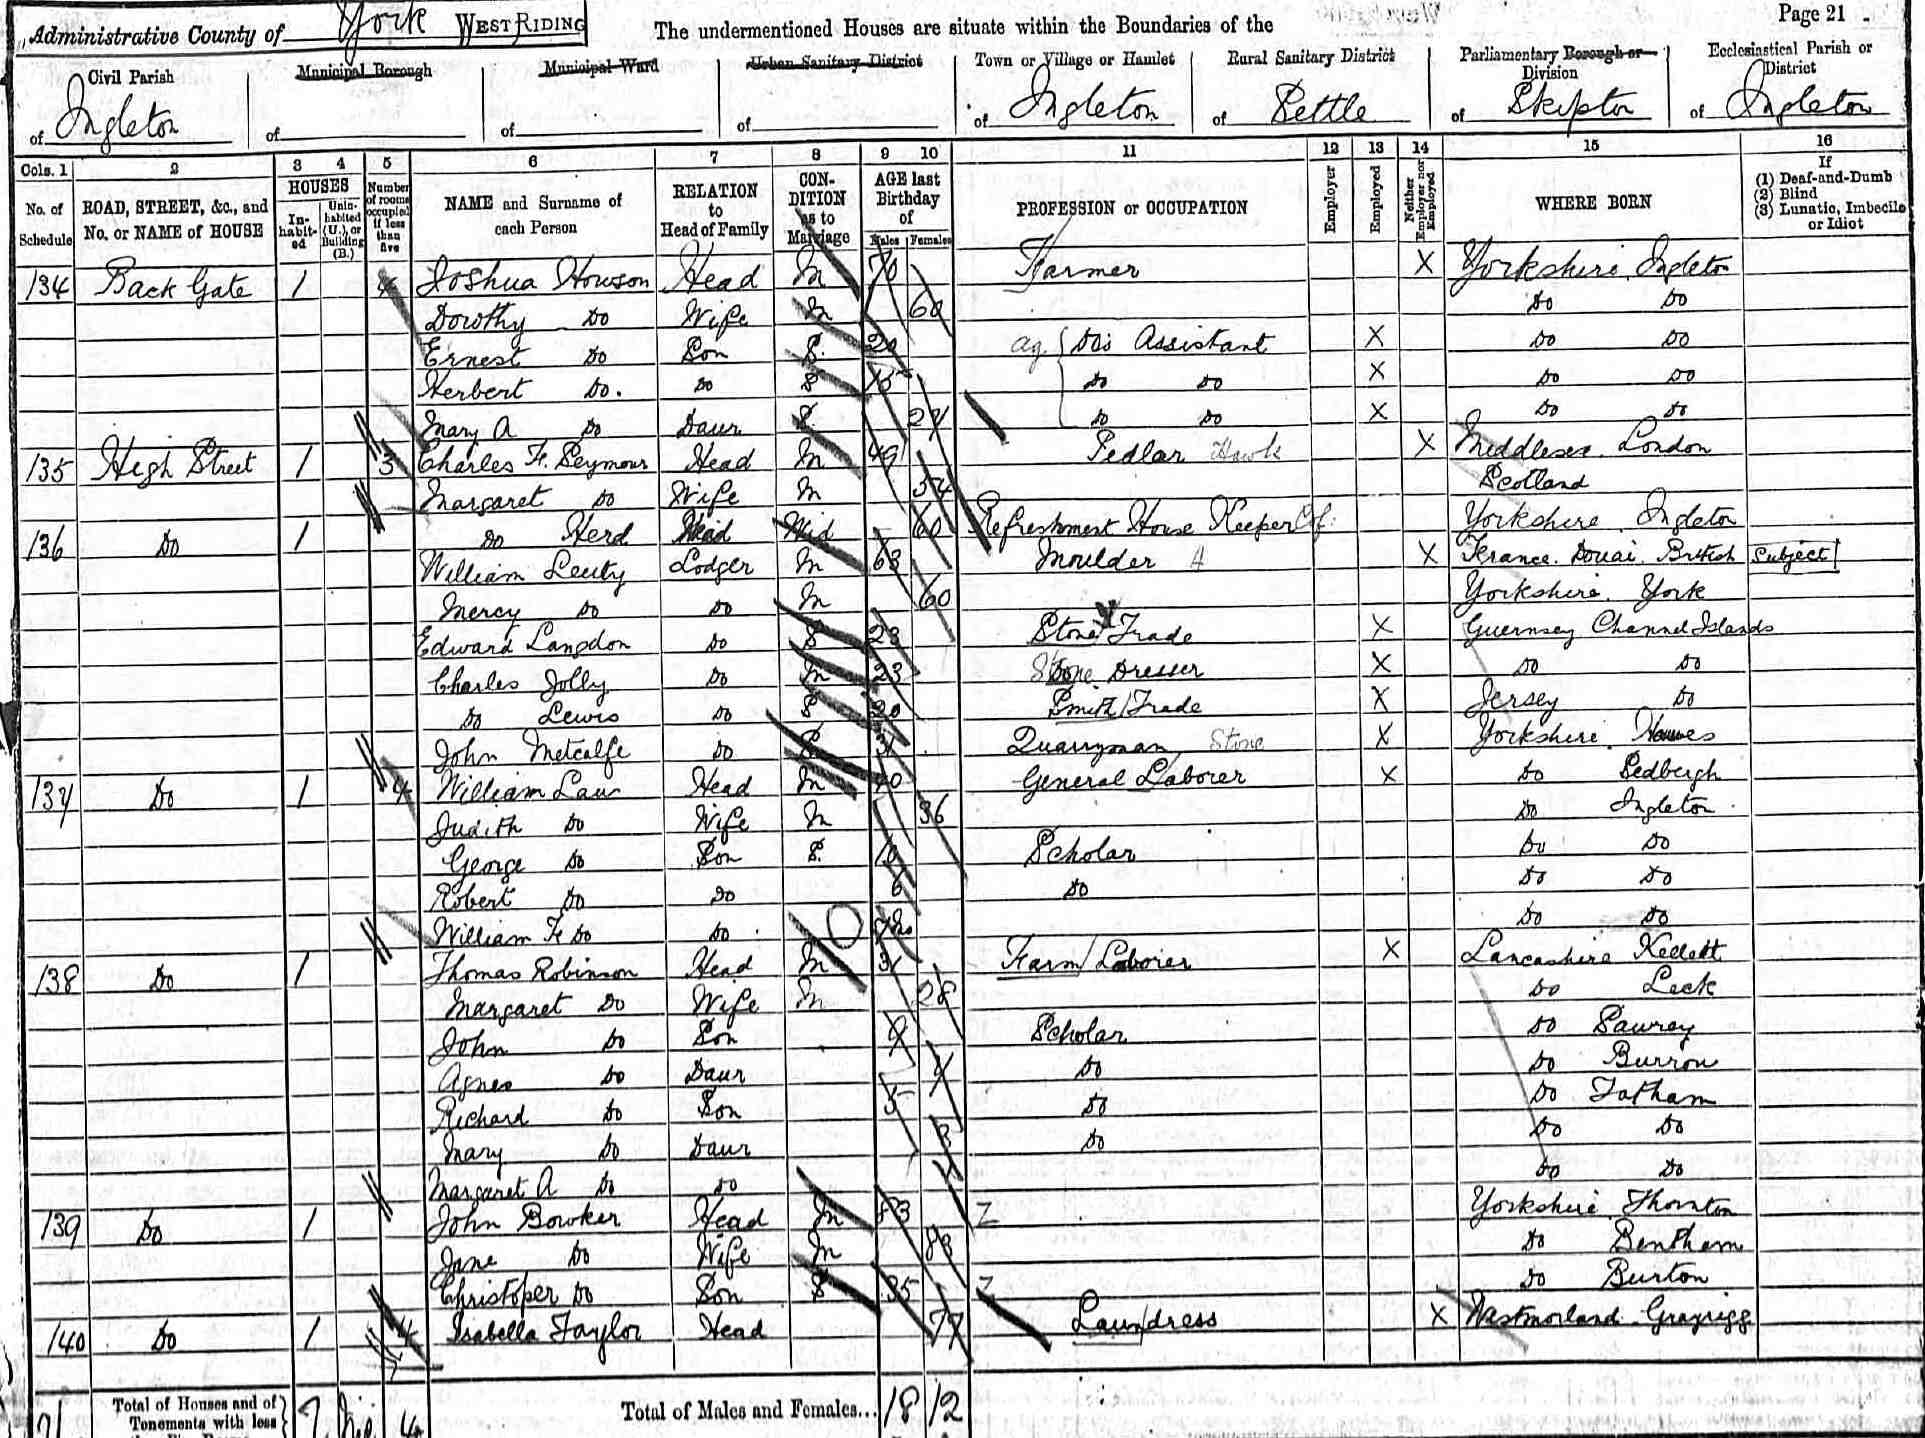 Page 21
Administrative County of York WEST RIDING
The undermentioned Houses are situate within the Boundaries of the
Civil Parish of Ingleton
Municipal Borough of
Municipal Ward of
Urban Sanitary District of
Town or Village or Hamlet of Ingleton
Rural Sanitary District of Settle
Parliamentary Borough or Division of Skipton
Ecclesiastical Parish or District of Ingleton
Cols. 1 2 3 4 5 6 7 8 9 10 11 12 13 14 15 16
No. of Schedule
ROAD, STREET, &c., and No. or NAME of HOUSE
HOUSES
Inhabited
Uninhabited (U.), or Building (B.)
Number of rooms occupied if less than five
NAME and Surname of each Person
RELATION to Head of Family
CONDITION as to Marriage
AGE last Birthday of
Males Females
PROFESSION or OCCUPATION
Employer
Employed
Neither Employer nor Employed
WHERE BORN
If
(1) Deaf-and-Dumb
(2) Blind
(3) Lunatic, Imbecile or Idiot
134 Back Gate 1 4 Joshua Howson Head M 70 Farmer X Yorkshire Ingleton
Dorothy Do Wife M 60 Do Do
Ernest Do Son S. 20 ag. Do's Assistant X Do Do
Herbert Do. Do S 15 Do Do X Do Do
Mary A Do Daur S. 24 Do Do X Do Do
135 High Street 1 3 Charles F. Seymour Head M 49 Pedlar Hawk X Middlesex London
Margaret Do Wife M 54 Scotland
136 Do 1 Do Herd Head Wid 60 Refreshment House Keeper Cof. Yorkshire Ingleton
William Leuty Lodger M 63 Moulder X France. Douai. British Subject
Mercy Do Do M 60 Yorkshire. York
Edward Langdon Do S 23 Stone Trade X Guernsey Channel Islands
Charles Jolly Do M 23 Stone Dresser X Do Do
Do Lewis Do S 20 Smith/Trade X Jersey Do
John Metcalfe Do S 31 Quarryman Stone X Yorkshire Hawes
137 Do 1 4 William Law Head M 40 General Laborer X Do Sedbergh
Judith Do Wife M 36 Do Ingleton
George Do Son S. 10 Scholar Do Do
Robert Do Do 6 Do Do Do
William F Do Do Do Do
138 Do 1 Thomas Robinson Head M 31 Farm/Laborer X Lancashire Kellett
Margaret Do Wife M 28 Do Leck
John Do Son 9 Scholar Do Sawrey
Agnes Do Daur Do Do Burron
Richard Do Son 5 Do Do Tatham
Mary Do Daur 3 Do Do Do
Margaret A Do Do Do Do
139 Do 1 John Bowker Head M 83 Yorkshire Thornton
Jane Do Wife M 83 Do Bentham
Christoper Do Son S 35 Do Burton
140 Do 1 4 Isabella Taylor Head 77 Laundress X Westmorland Grayrigg
Total of Houses and of Tenements with less 7 Nil 4
Total of Males and Females... 18 12